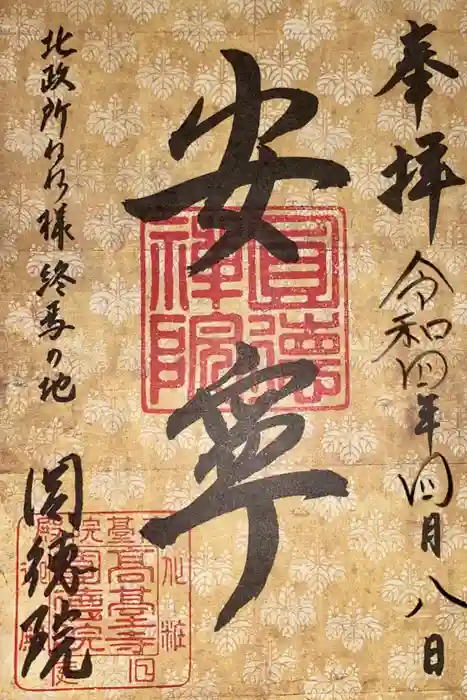 奉拝
令和四年四月八日
安寧
圓德
禪院
北政所ねね様終焉の地
圓徳院
高臺寺